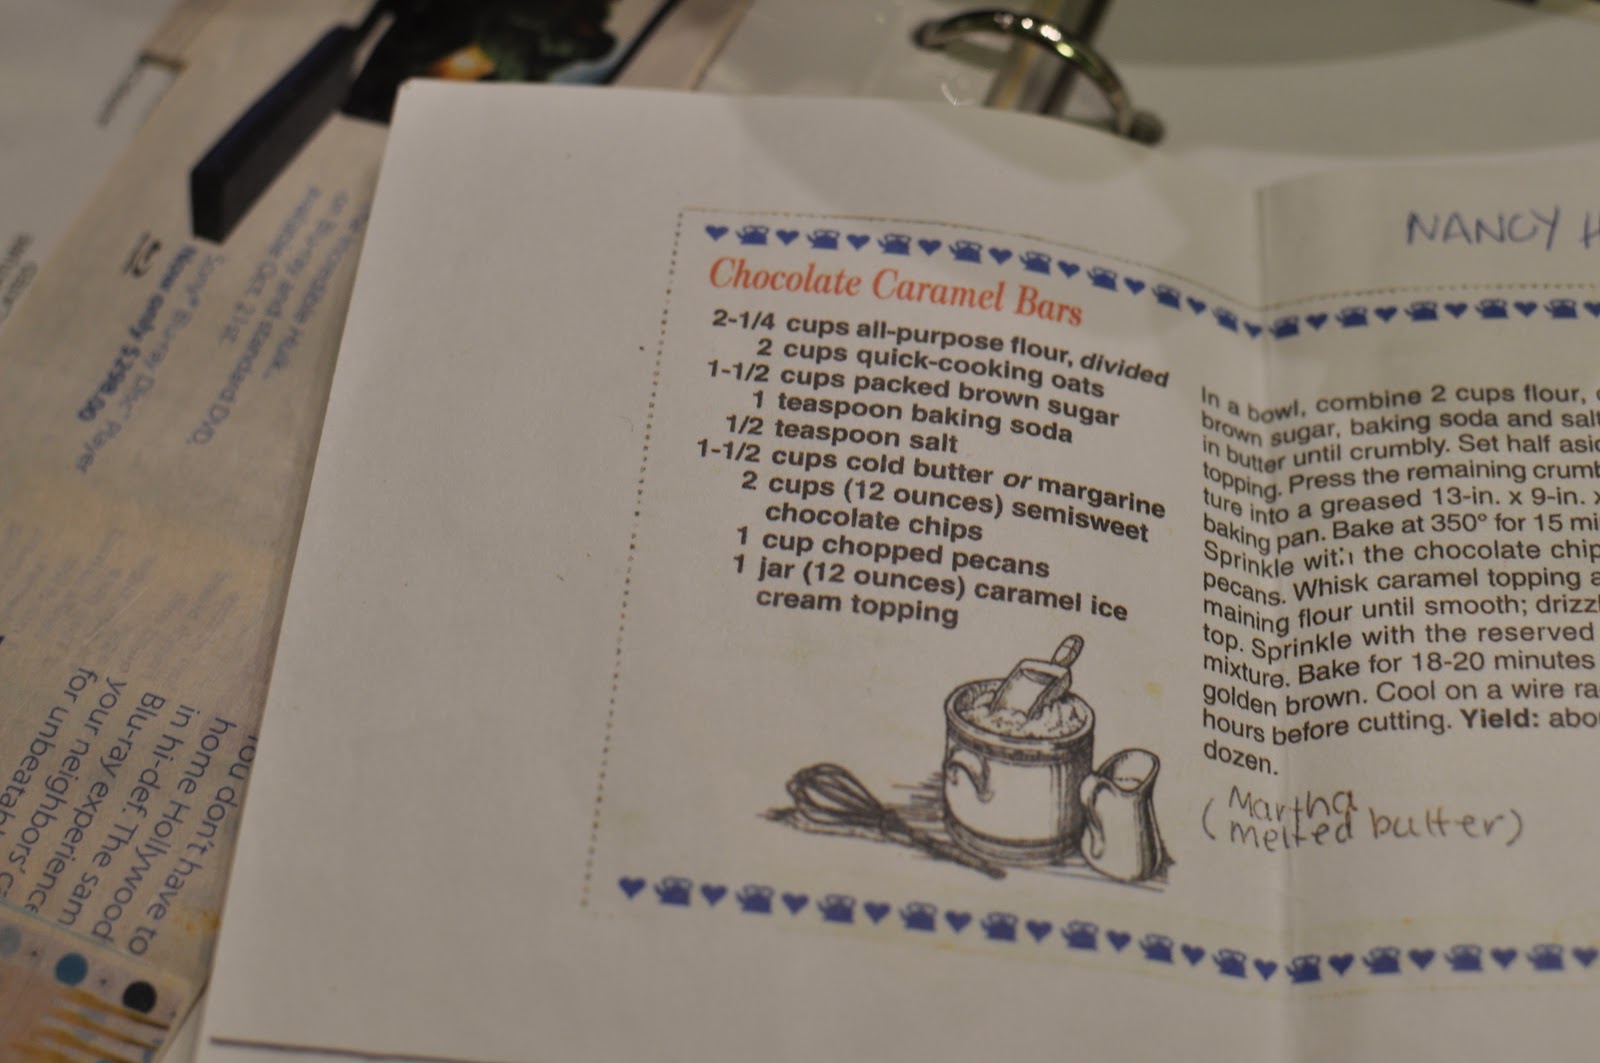 NANCY H
Chocolate Caramel Bars
2-1/4 cups all-purpose flour, divided
2 cups quick-cooking oats
1-1/2 cups packed brown sugar
1 teaspoon baking soda
1/2 teaspoon salt
1-1/2 cups cold butter or margarine
2 cups (12 ounces) semisweet
chocolate chips
1 cup chopped pecans
1 jar (12 ounces) caramel ice
cream topping
In a bowl, combine 2 cups flour,
brown sugar, baking soda and salt
in butter until crumbly. Set half
topping. Press the remaining
ture into a greased 13-in. x 9-in. x
baking pan. Bake at 350° for 15
Sprinkle with the chocolate
pecans. Whisk caramel topping
maining flour until smooth;
top. Sprinkle with the reserved
mixture. Bake for 18-20 minutes
golden brown. Cool on a wire
hours before cutting. Yield:
dozen.
(Martha
melted butter)
or Blu-ray and standard DVD.
Available Oct. 21st
Sony® Blu-ray Disc™ Player
Now only $298.00
You don't have to
home Hollywood
in hi-def. The sam
Blu-ray experience
your neighbors'
for unbeatab